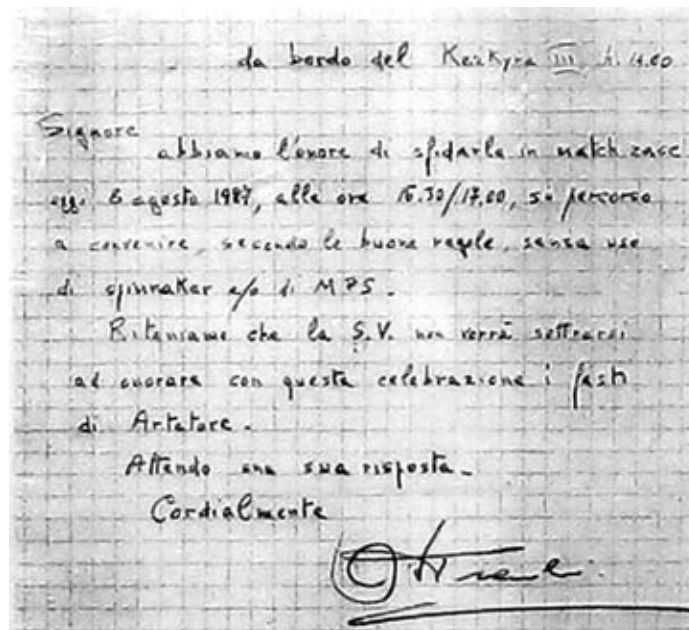 da bordo del Kerkyra III h. 14.00
Signore
abbiamo l'onore di sfidarla in match race
oggi 6 agosto 1987, alle ore 16.30/17.00, su percorso
a convenire, secondo le buone regole, senza uso
di spinnaker e/o di MPS.
Riteniamo che la S.V. non vorrà sottrarsi
ad onorare con questa celebrazione i fasti
di Artatore.
Attendo una sua risposta.
Cordialmente